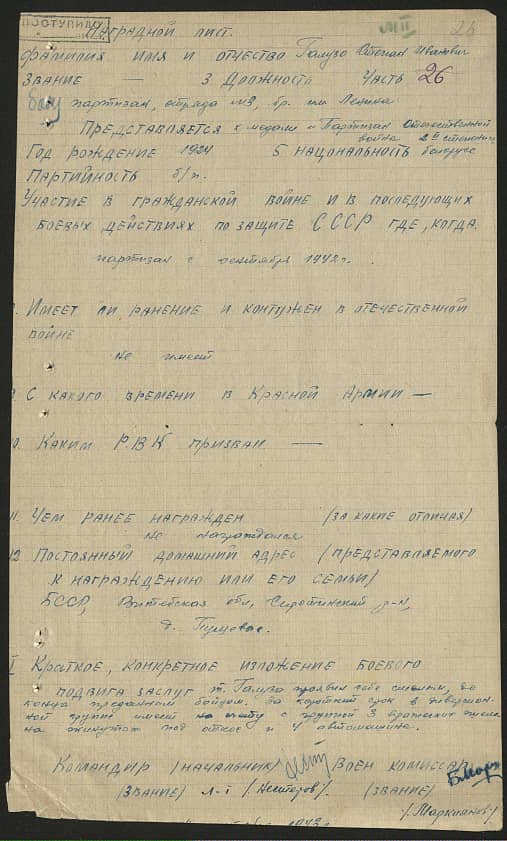 ПОСТУПИЛО
26
Наградной лист.
Фамилия имя и отчество Галузо Степан Иванович
Звание — 3 Должность Часть 26
партизан, отряда №3, бр. им Ленина
Представляется к медали "Партизан Отечественной
война 2й степени
Год рождение 1924 5 Нациоальность белорусс
Партийность б/п.
Участие в гражданской войне и в последующих
боевых действиях по защите СССР где, когда.
партизан с сентября 1942 г.
Имеет ли ранение и контужен в отечественной
войне
Не имеет
С какого времени в Красной Армии —
0. Каким Р.В.К призван —
11. Чем ранее награжден (за какие отличая)
Не награждался
12 Постоянный домашний адрес (представляемого
к награждению или его семьи)
БССР, Витебская обл, Сиротинский р-н,
д.
I Краткое, конкретное изложение боевого
подвига заслуг т. Галузо проявил себя смелым, до
конца преданным бойцом. За короткий срок в диверсион-
ной группе имеет на счету с группой 3 вражеских
под откос и 4 автомашины.
Командир (начальник) Воен комисса
(звание) л-т /Нестеров/. (звание)
/.Маркианов/